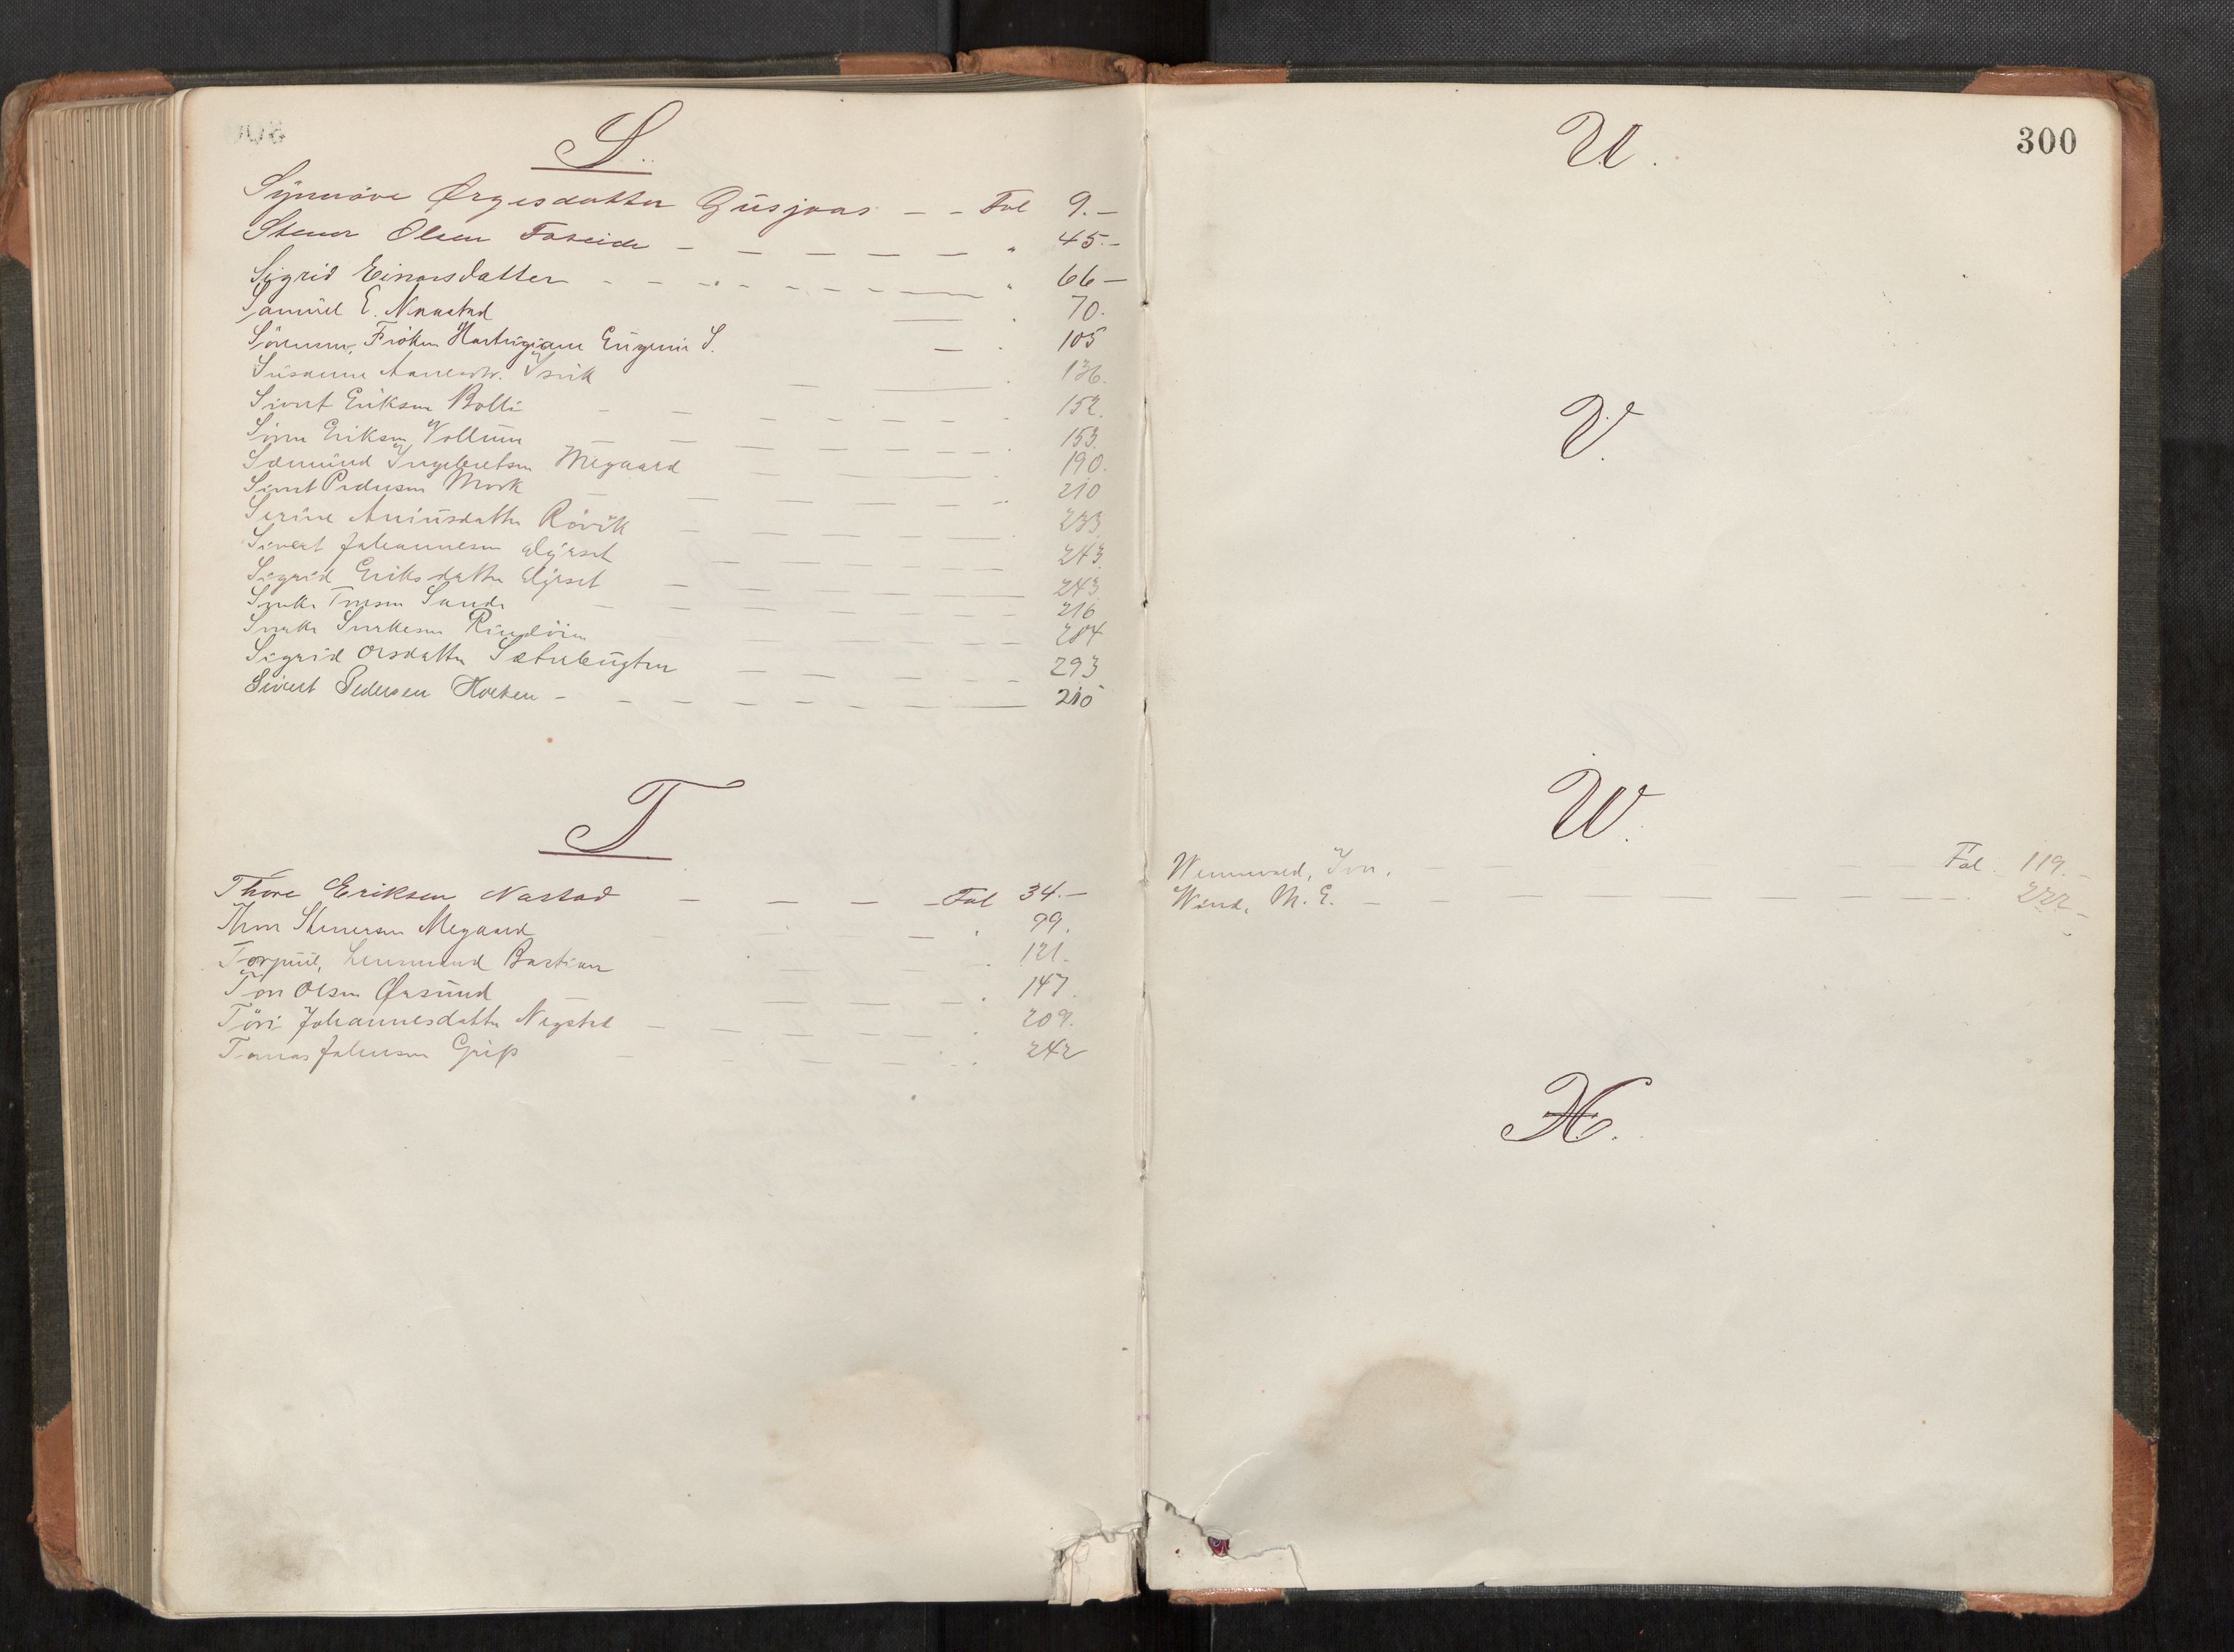 S.
Synnøve Ørgesdatter Gusjaas - - Fol 9.-
Stener Olsen Foseide - - - - - " 45.-
Sigrid Einarsdatter - - - - - - - " 66-
Samuel E. Naastad - . 70.
Sörensen, Fröken Hartvigiane Eugenie S. - . 105
Susanne Aanensdtr. - - . 136.
Sivert Eriksen Bolli - - - - - - . 152.
Sören Eriksen Vollum - - - - - - . 153.
Sæmund Ingebretsen Megaard - - - - . 190.
Sivert Pedersen Mork - - - - - . 210
Serine Aniusdatter Rövik - - - - - 233.
Sivert Johannesen - - - - - 243.
Sigrid Eriksdatter - - - - - 243.
Sande - - - - - 216
- - - - - 284
Sigrid Olsdatter Sæterbugten - - - - - 293
Sivert Pedersen - - - - - - - 210
T
Thore Eriksen Nastad - - - - Fol 34.-
Thor Stenersen Megaard - . 99.
Lensmand Bastian - . 121.
Tore Olsen Ørsund - - - - . 147.
Töri Johannesdatter Negstad - - - - . 209.
Tomas Johnsen Grip - . 242
300
U.
V.
W.
Wennevold, Iver. - - - Fol. 119.-
Wind, M. E. - - - - - - - - - - . 222-
X.